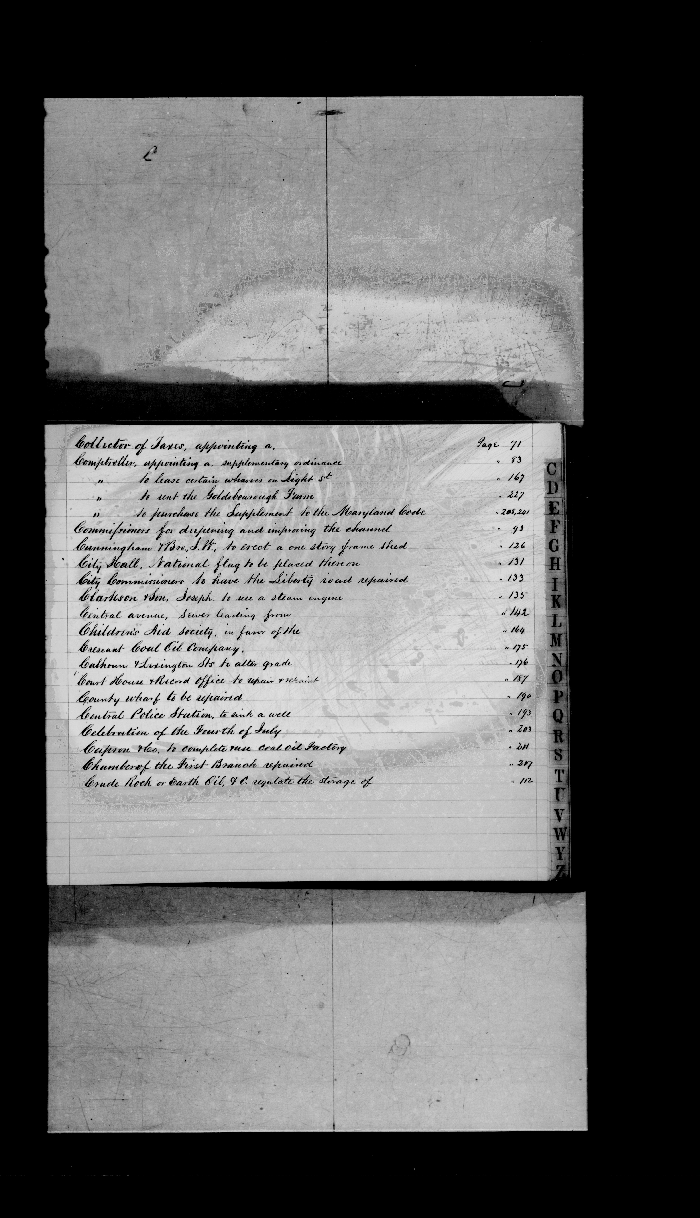 C
Collector of Taxes, appointing a. Page 71
Comptroller, appointing a supplementary ordinance " 83
" to lease certain wharves on Light St " 167
" to rent the Goldsborough Farm " 227
" to purchase the Supplement to the Maryland Code " 205,241
Commissioners for deepening and improving the channel " 93
Cunningham & Bro, J.W, to erect a one story frame shed " 126
City Hall, National flag to be placed thereon " 131
City Commissioners to have the Liberty road repaired " 133
Clarkson & Son, Joseph to use a steam engine " 135
Central avenue, Sewer leading from " 142
Children's Aid Society, in favor of the " 164
Crescent Coal Oil Company. " 175
Calhoun & Lexington Sts to alter grade " 176
Court House & Record Office to repair & repaint " 187
County wharf to be repaired " 190
Central Police Station, to sink a well " 193
Celebration of the Fourth of July " 203
& Co. to complete coal oil Factory " 211
Chamber of the First Branch repaired " 207
Crude Rock or Earth Oil, &c. regulate the storage of " 112
C
D
E
F
G
H
I
K
L
M
N
O
P
Q
R
S
T
U
V
W
Y
Z